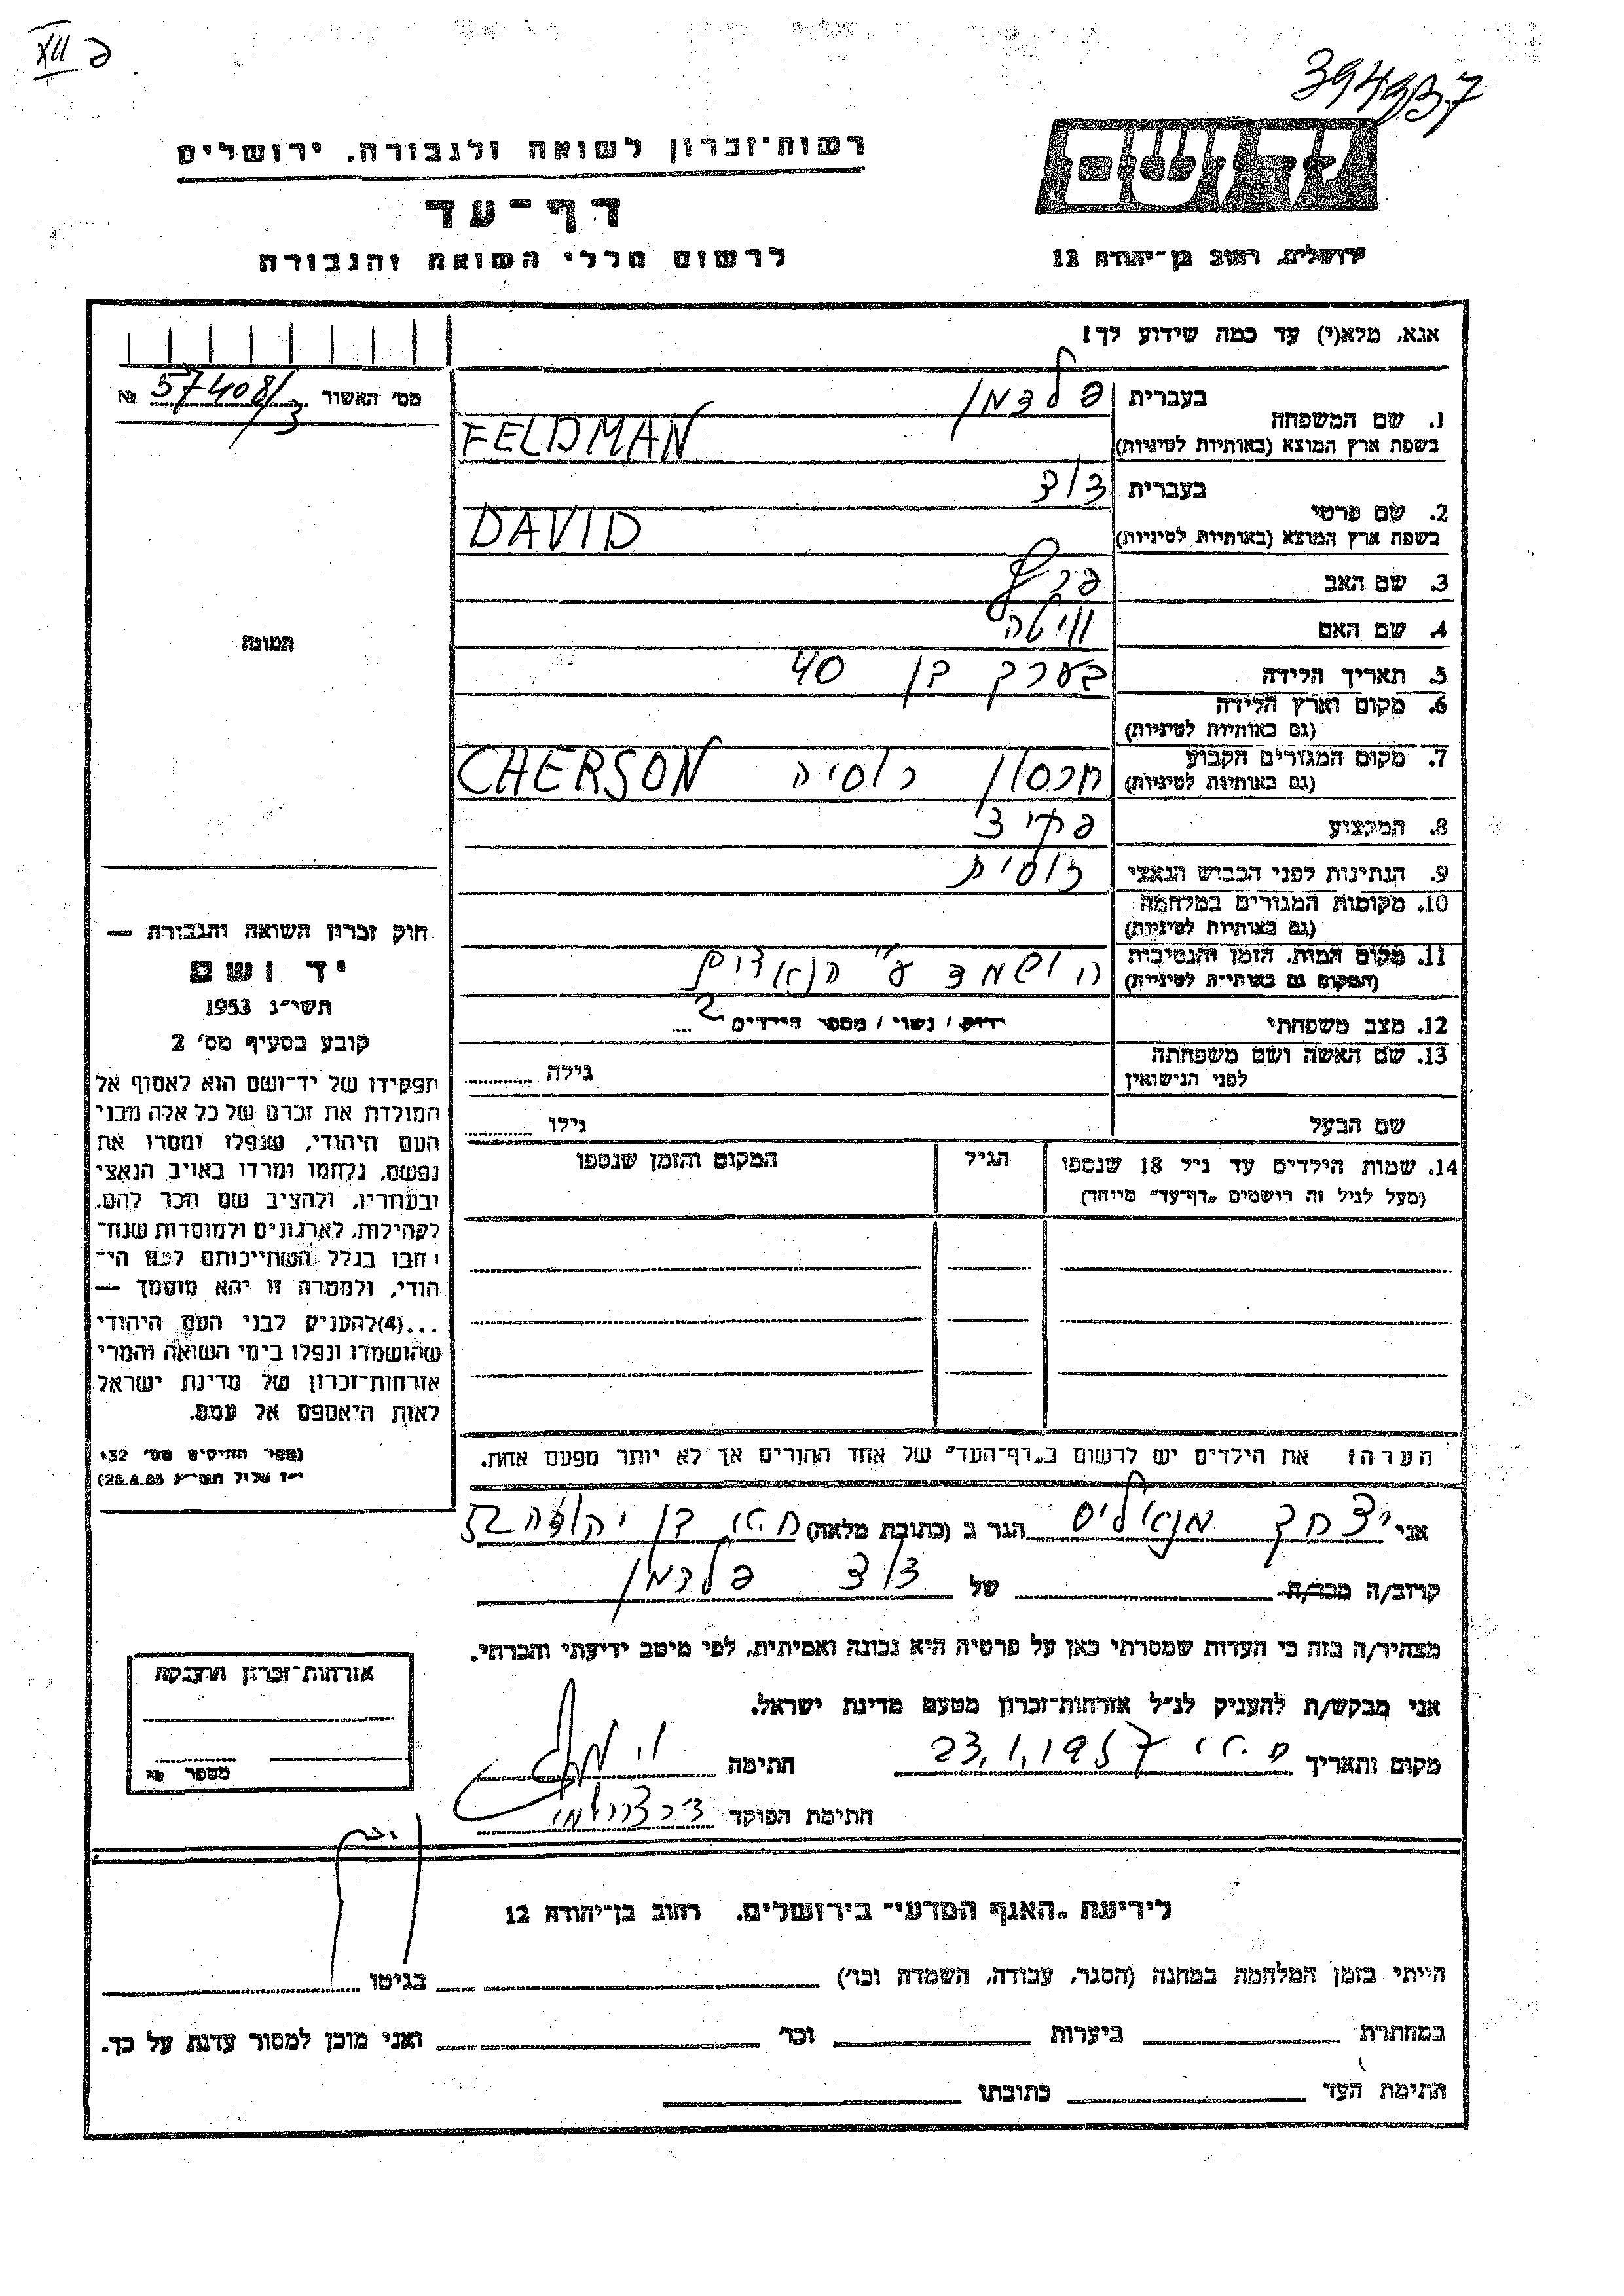 XII כ
394937
רשות־זכרון לשואה ולגבורה, ירושלים
יד ושם
דף־עד
ירושלים, רחוב בן־יהודה 12
לרשום חללי השואה והגבורה
אנא, מלא(י) עד כמה שידוע לך!
מס׳ האשור 57408/3 №
1. שם המשפחה
בעברית פלדמן
בשפת ארץ המוצא (באותיות לטיניות) FELDMAN
2. שם פרטי
בעברית דוד
בשפת ארץ המוצא (באותיות לטיניות) DAVID
3. שם האב
4. שם האם ויטה
5. תאריך הלידה בערך בן 40
6. מקום וארץ הלידה
(גם באותיות לטיניות)
7. מקום המגורים הקבוע
(גם באותיות לטיניות) חרסון רוסיה CHERSON
8. המקצוע פקיד
9. הנתינות לפני הכבוש הנאצי רוסית
10. מקומות המגורים במלחמה
(גם באותיות לטיניות)
11. מקום המות, הזמן והנסיבות
(המקום גם באותיות לטיניות) הושמד ע״י הנאצים
12. מצב משפחתי רווק / נשוי / מספר הילדים 2
13. שם האשה ושם משפחתה
לפני הנישואין
גילה
שם הבעל גילו
14. שמות הילדים עד גיל 18 שנספו
(מעל לגיל זה רושמים „דף־עד״ מיוחד)
הגיל
המקום והזמן שנספו
הערה: את הילדים יש לרשום ב„דף־העד״ של אחד ההורים אך לא יותר מפעם אחת.
תמונה
חוק זכרון השואה והגבורה —
יד ושם
תשי״ג 1953
קובע בסעיף מס׳ 2
תפקידו של יד־ושם הוא לאסוף אל
המולדת את זכרם של כל אלה מבני
העם היהודי, שנפלו ומסרו את
נפשם, נלחמו ומרדו באויב הנאצי
ובעוזריו, ולהציב שם וזכר להם,
לקהילות, לארגונים ולמוסדות שנח־
רבו בגלל השתייכותם לעם הי־
הודי, ולמטרה זו יהא מוסמך —
...(4) להעניק לבני העם היהודי
שהושמדו ונפלו בימי השואה והמרי
אזרחות־זכרון של מדינת ישראל
לאות היאספם אל עמם.
(ספר החוקים מס׳ 132
י״ז אלול תשי״ג 28.8.53)
אני יצחק מנאליס הגר ב (כתובת מלאה)
קרוב/ה מכר/ה של דוד פלדמן
מצהיר/ה בזה כי העדות שמסרתי כאן על פרטיה היא נכונה ואמיתית, לפי מיטב ידיעתי והכרתי.
אני מבקש/ת להעניק לנ״ל אזרחות־זכרון מטעם מדינת ישראל.
מקום ותאריך 23.1.1957 חתימה
חתימת הפוקד
אזרחות־זכרון הוענקה
מספר №
לידיעת „האגף המדעי״ בירושלים, רחוב בן־יהודה 12
הייתי בזמן המלחמה במחנה (הסגר, עבודה, השמדה וכו׳) בגיטו
במחתרת ביערות וכו׳ ואני מוכן למסור עדות על כך.
חתימת העד כתובתו